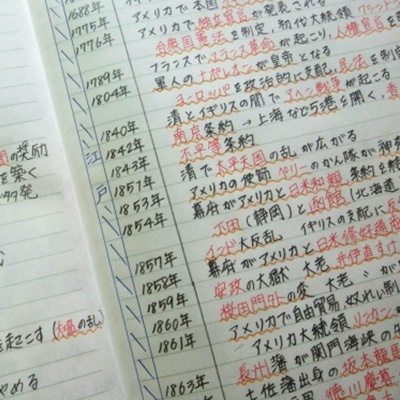 1688年 アメリカで本国
1775年 アメリカで独立宣言が発表される
1776年 合衆国憲法を制定、初代大統領ワシントン
フランスでフランス革命が起こり、人権宣言を
1789年 軍人のナポレオンが皇帝となる
1804年 ヨーロッパを政治的に支配、民法を制定
清とイギリスの間でアヘン戦争が起こる
1840年 南京条約→上海など5港を開く、香
1842年 不平等条約
1843年 清で太平天国の乱が広がる
1851年 アメリカの使節ペリーのかん隊が神奈
1853年 幕府がアメリカと日米和親条約を結
1854年 下田(静岡)と函館(北海道
インド大反乱 イギリスの支配に反
1857年 幕府がアメリカと日米修好通商
1858年 安政の大獄 大老 井伊直すけ
1859年 桜田門外の変 大老〃が
1860年 アメリカで自由貿易、奴れい制
1861年 アメリカ大統領リンカン
長州藩が関門海峡の
1863年 土佐藩出身の坂本龍馬
徳川慶喜
江戸
の奨励
を築く
発
起こす(大塩の乱)
やめる